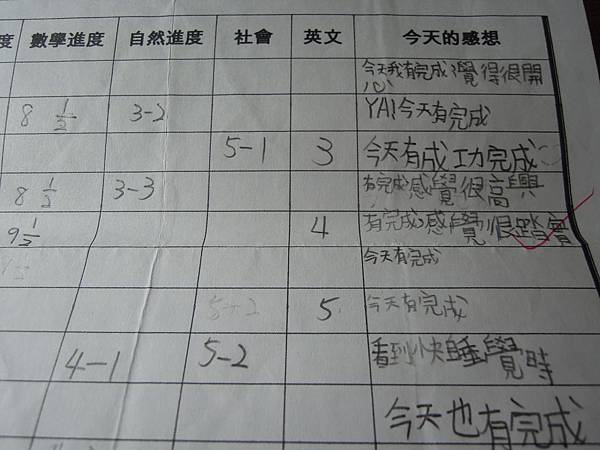 度 數學進度 自然進度 社會 英文 今天的感想
今天我有完成覺得很開
心
8 1/2 3-2 YA!今天有完成
5-1 3 今天有成功完成
8 1/2 3-3 有完成感覺很高興
9 1/2 4 有完成感覺很踏實
今天有完成
5-2 5 今天有完成
4-1 5-2 看到快睡覺時
今天也有完成